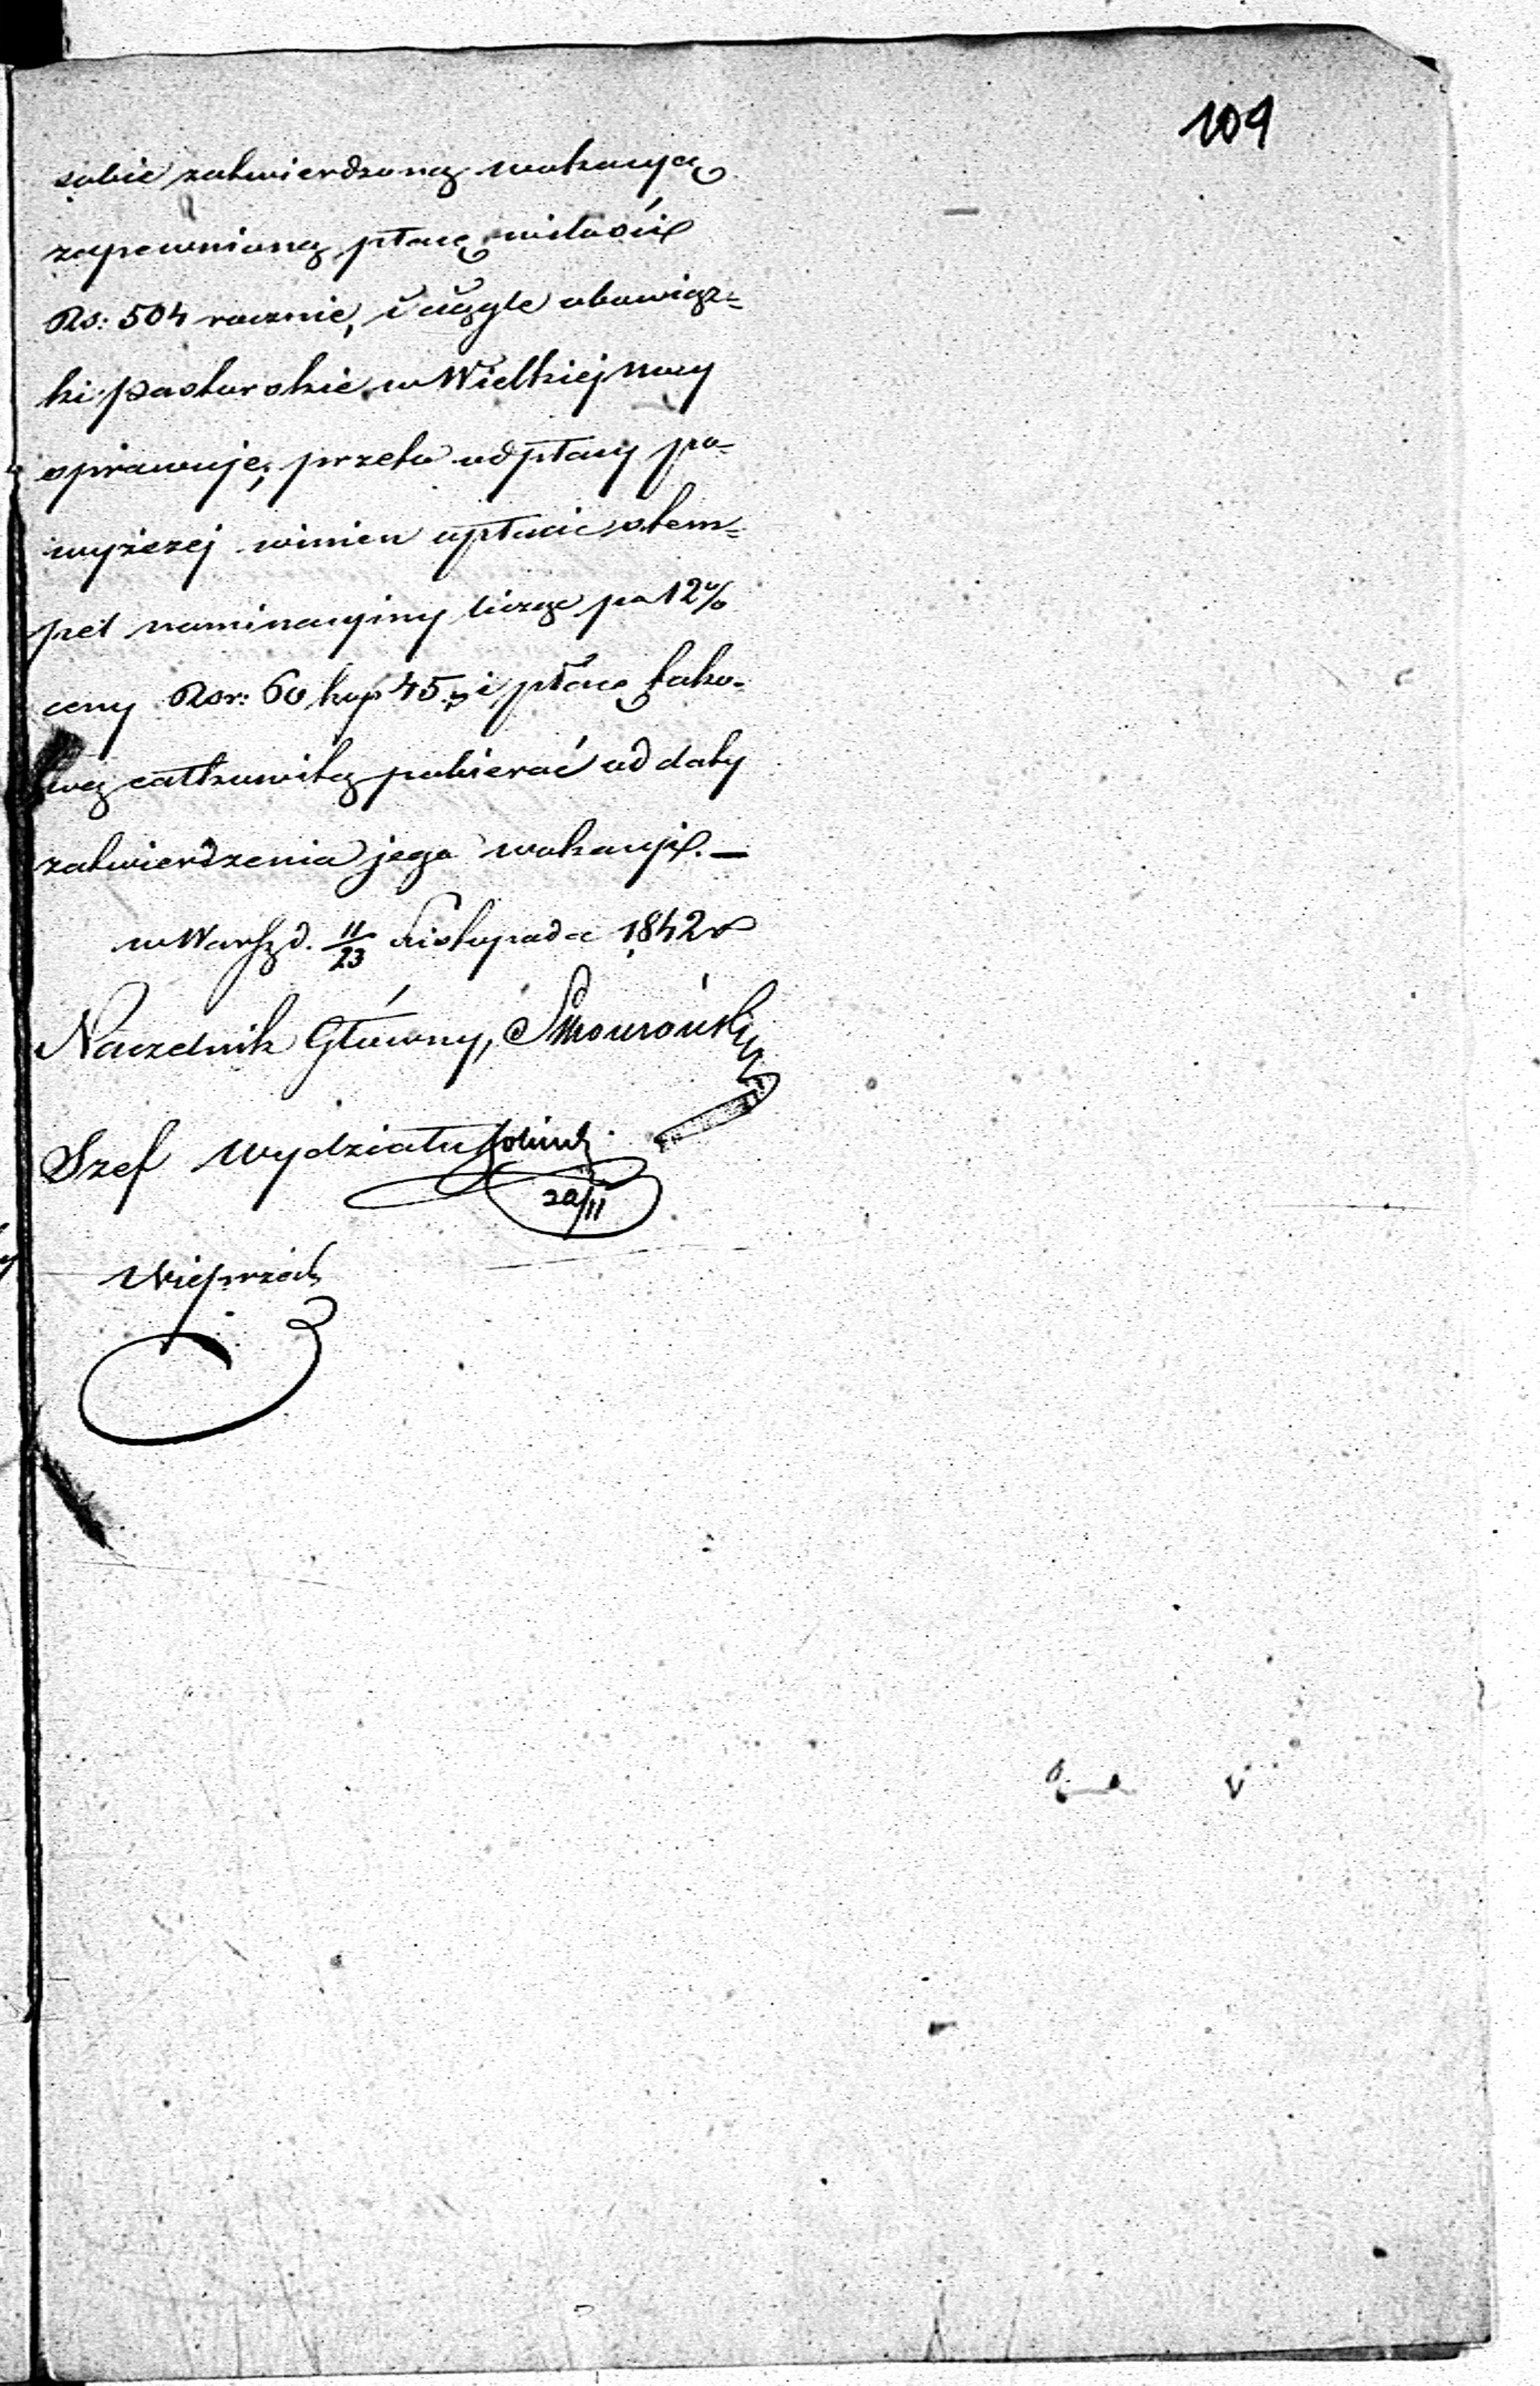 109
sobie zatwierdzoną wokacyą
zapewnioną płacę w ilości
Rs: 504 rocznie, i ciągle obowiąz=
ki Pastorskie w Wielkiej nocy
sprawuje; przeto od płacy po=
wyższej winien opłacić stem=
pel nominacyiny licząc po 12%
ceny Rsr: 60 kop 45. i płacę tako=
wą całkowitą pobierać od daty
zatwierdzenia jego wokacyi. —
w Warsz d. 11/23 Listopada 1842 r
Naczelnik Główny,
Szef Wydziału
20/11